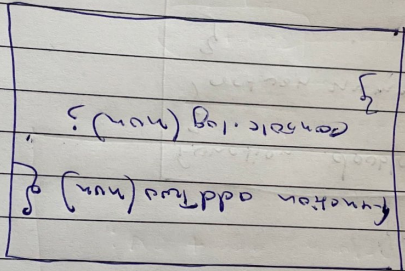 function addTwo (num) {
console.log (num);
}